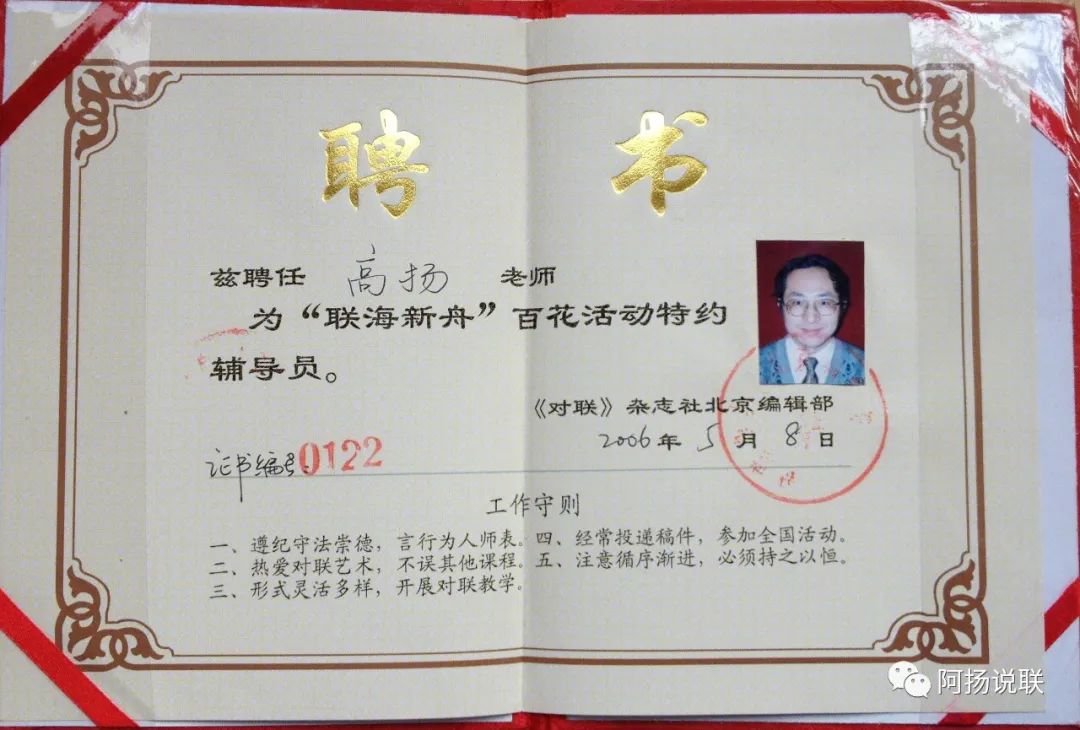 聘书
兹聘任 高扬 老师
为“联海新舟”百花活动特约
辅导员。
《对联》杂志社北京编辑部
2006年5月8日
证书编号:0122
工作守则
一、遵纪守法崇德，言行为人师表。
二、热爱对联艺术，不误其他课程。
三、形式灵活多样，开展对联教学。
四、经常投递稿件，参加全国活动。
五、注意循序渐进，必须持之以恒。
阿扬说联